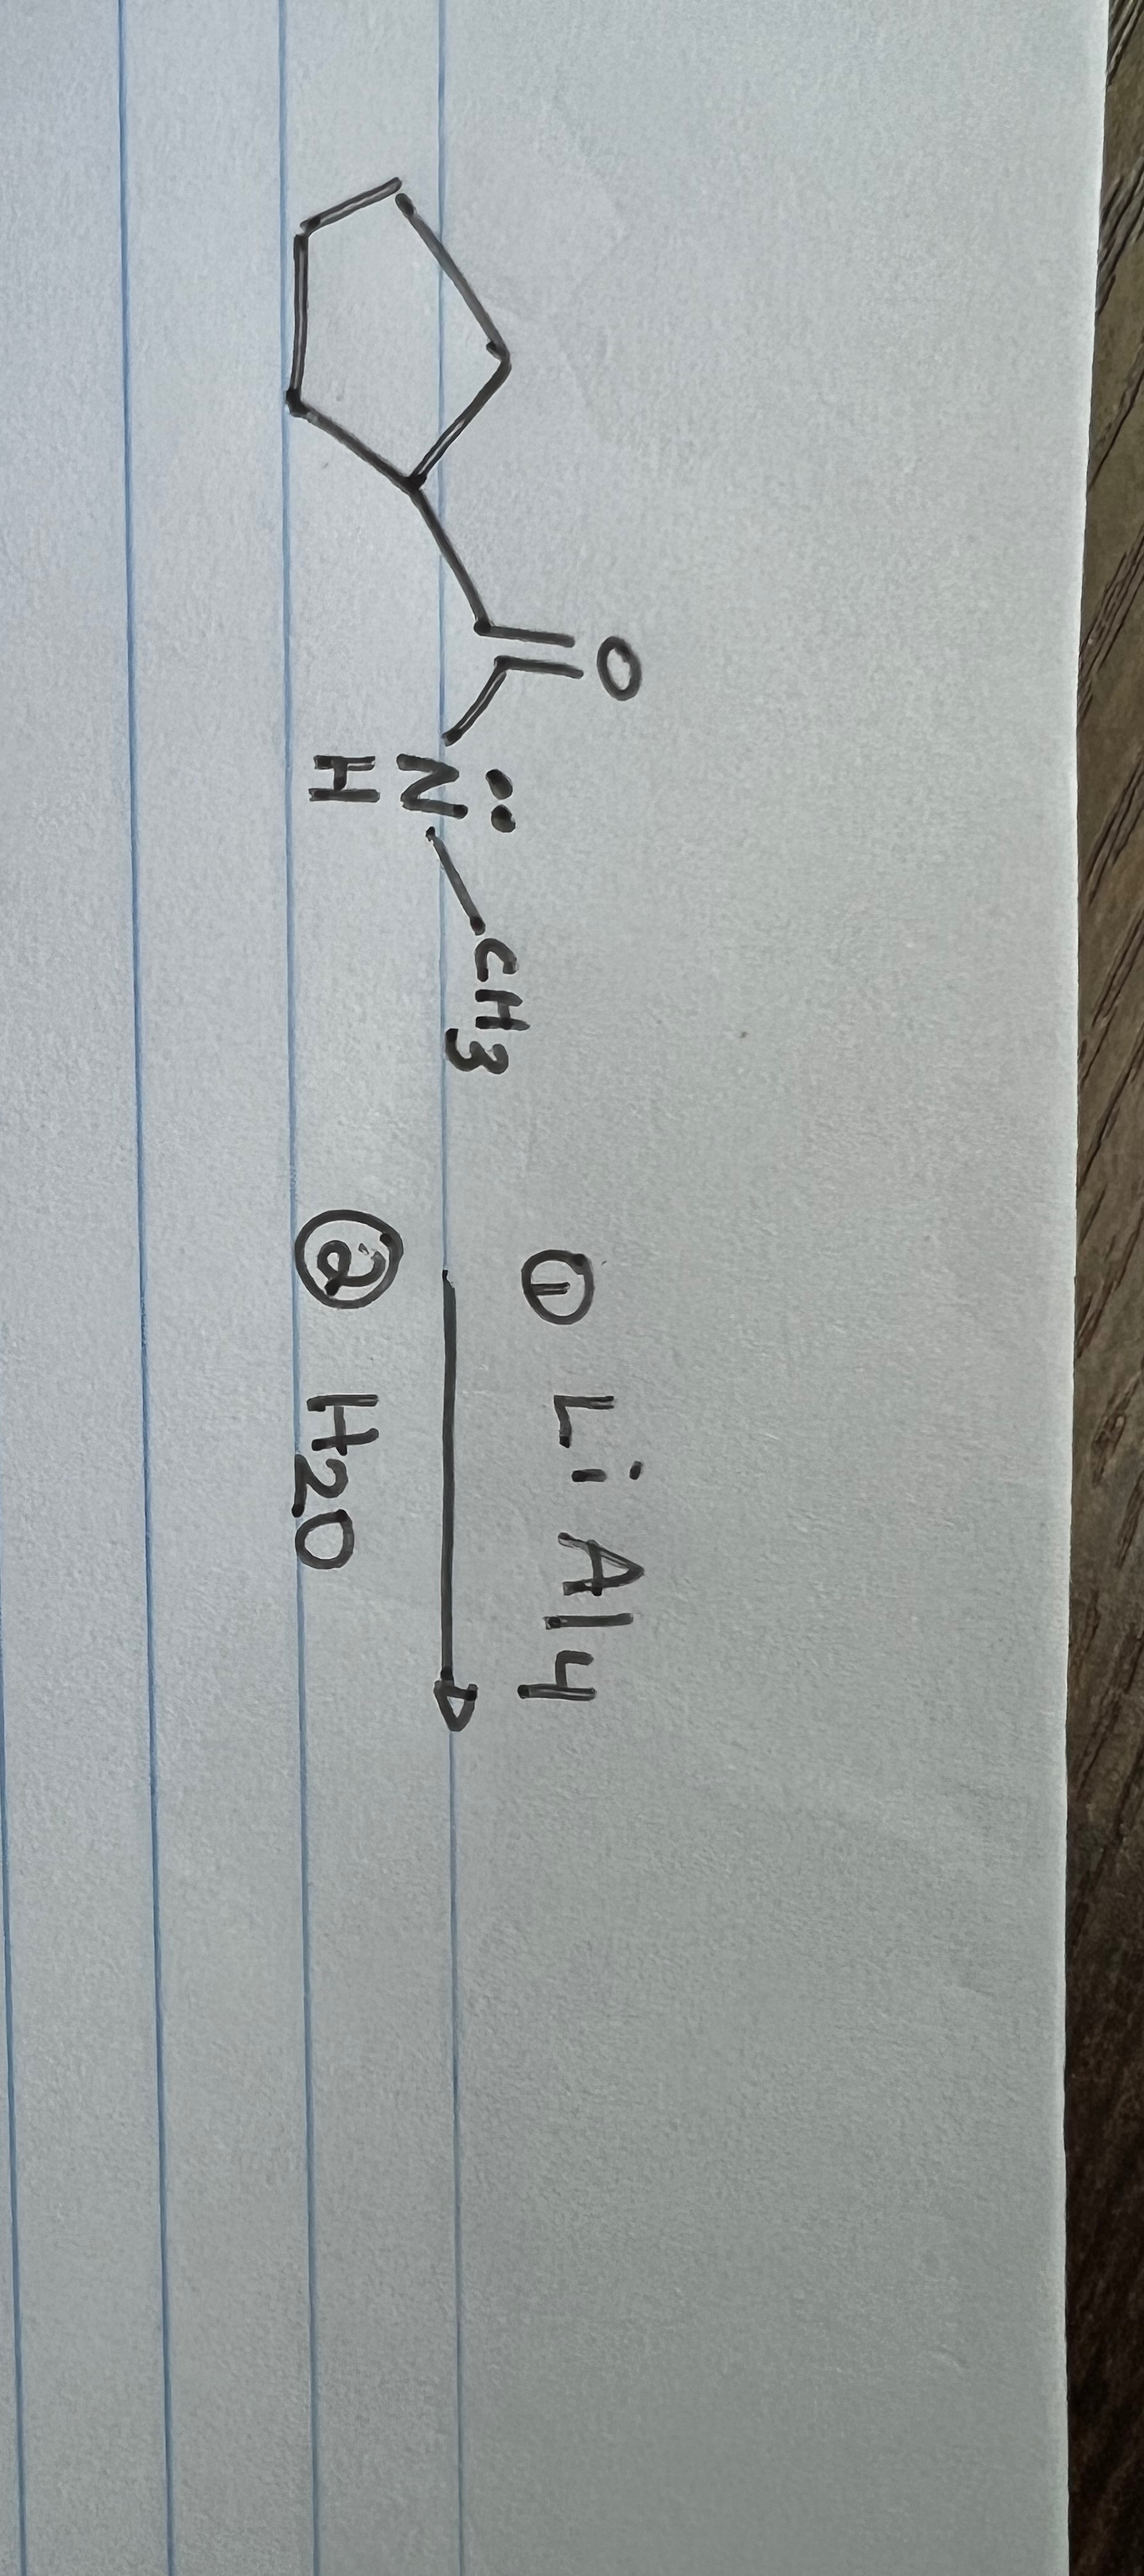 O
N̈
H
CH3
① Li Al4
② H2O